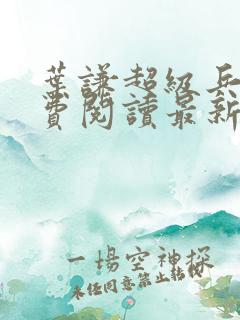 葉謙超級兵
費閱讀最新
一場空神探
未任同意禁止轉載